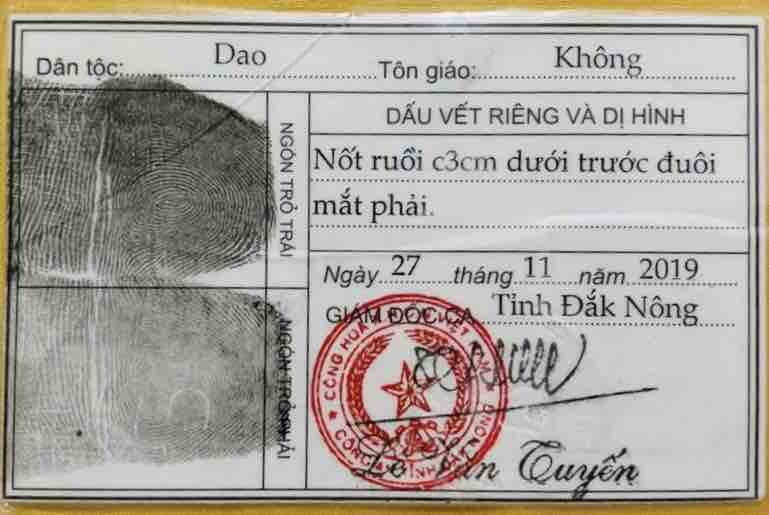 Dân tộc: Dao Tôn giáo: Không
NGÓN TRỎ TRÁI
DẤU VẾT RIÊNG VÀ DỊ HÌNH
Nốt ruồi c3cm dưới trước đuôi
mắt phải.
Ngày 27 tháng 11 năm 2019
GIÁM ĐỐC CA Tỉnh Đắk Nông
NGÓN TRỎ PHẢI
CỘNG HOÀ
CÔNG AN TỈNH ĐẮK NÔNG
Lê Văn Tuyến